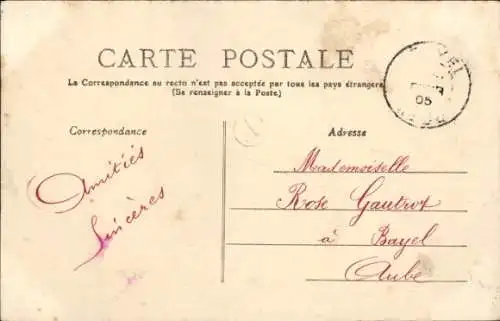 CARTE POSTALE
La Correspondance au recto n'est pas acceptée par tous les pays étrangers
(Se renseigner à la Poste)
Correspondance
Adresse
Amitiés
Sincères
Mademoiselle
Rose Gautrot
à Bayel
Aube
05